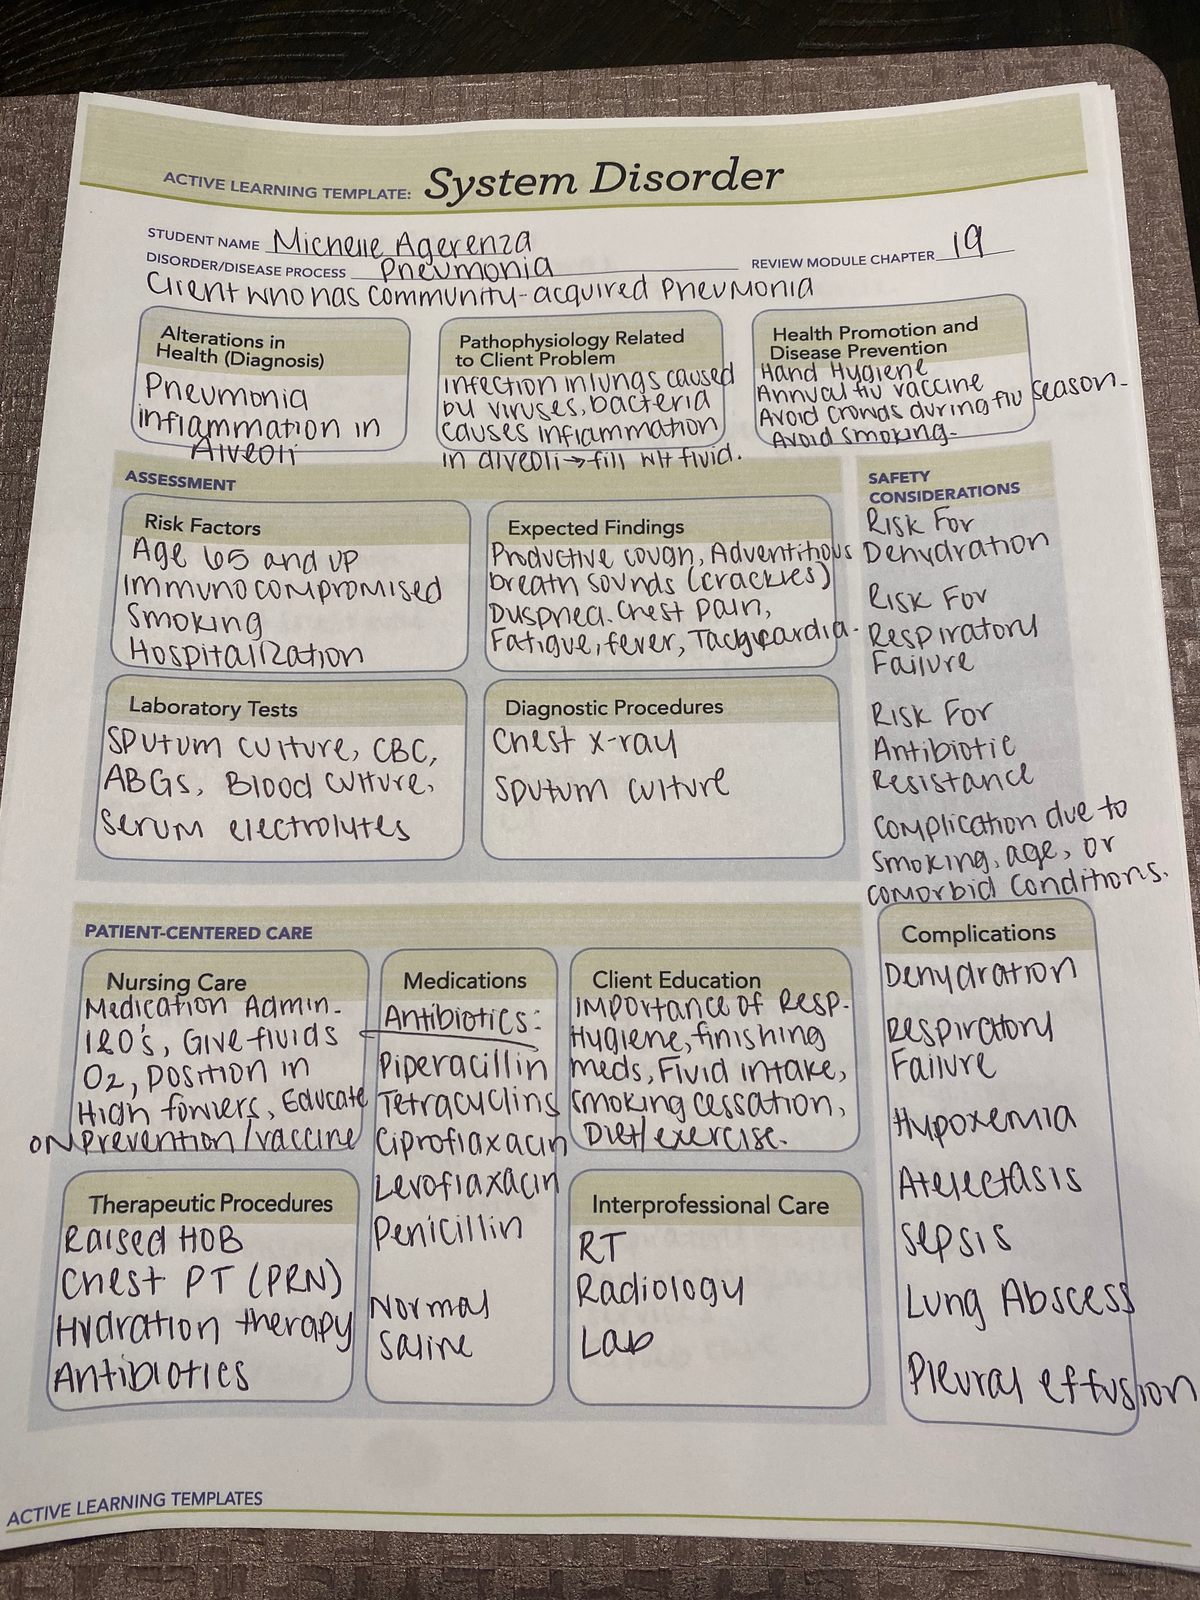 ACTIVE LEARNING TEMPLATE: System Disorder
STUDENT NAME Michelle Agerenza
DISORDER/DISEASE PROCESS Pneumonia
REVIEW MODULE CHAPTER 19
Client who has community-acquired Pneumonia
Alterations in
Health (Diagnosis)
Pneumonia
inflammation in
Alveoli
Pathophysiology Related
to Client Problem
infection in lungs caused
by viruses, bacteria
causes inflammation
in alveoli → fill wit fluid.
Health Promotion and
Disease Prevention
Hand Hygiene
Annual flu vaccine
Avoid crowds during flu season.
Avoid smoking.
ASSESSMENT
Risk Factors
Age 65 and up
Immunocompromised
Smoking
Hospitalization
Expected Findings
Productive cough, Adventitious
breath sounds (crackles)
Dyspnea. Chest pain,
Fatigue, fever, Tachycardia.
Laboratory Tests
Sputum culture, CBC,
ABGs, Blood culture,
Serum electrolytes
Diagnostic Procedures
Chest x-ray
Sputum culture
SAFETY
CONSIDERATIONS
Risk For
Dehydration
Risk For
Respiratory
Failure
Risk For
Antibiotic
Resistance
Complication due to
smoking, age, or
comorbid conditions.
PATIENT-CENTERED CARE
Nursing Care
Medication Admin.
I&O's, Give fluids
O2, position in
High fowlers, Educate
on prevention/vaccine
Medications
Antibiotics:
Piperacillin
Tetracyclins
Ciproflaxacin
Levoflaxacin
Penicillin
Normal
Saline
Client Education
Importance of Resp.
Hygiene, finishing
meds, Fluid intake,
smoking cessation,
Diet/exercise.
Therapeutic Procedures
Raised HOB
Chest PT (PRN)
Hydration therapy
Antibiotics
Interprofessional Care
RT
Radiology
Lab
Complications
Dehydration
Respiratory
Failure
Hypoxemia
Atelectasis
Sepsis
Lung Abscess
Pleural effusion
ACTIVE LEARNING TEMPLATES